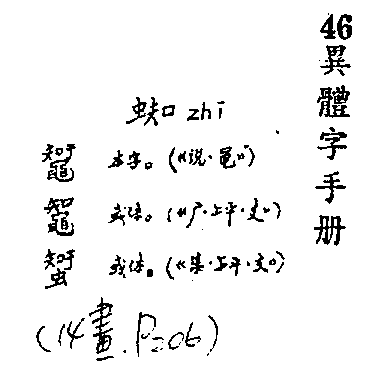 46
異體字手册
蜘 zhī
本字。(《说·黾》)
鼅 或体。(《广·上平·支》)
或体。(《集·上平·支》)
(14畫.P206)